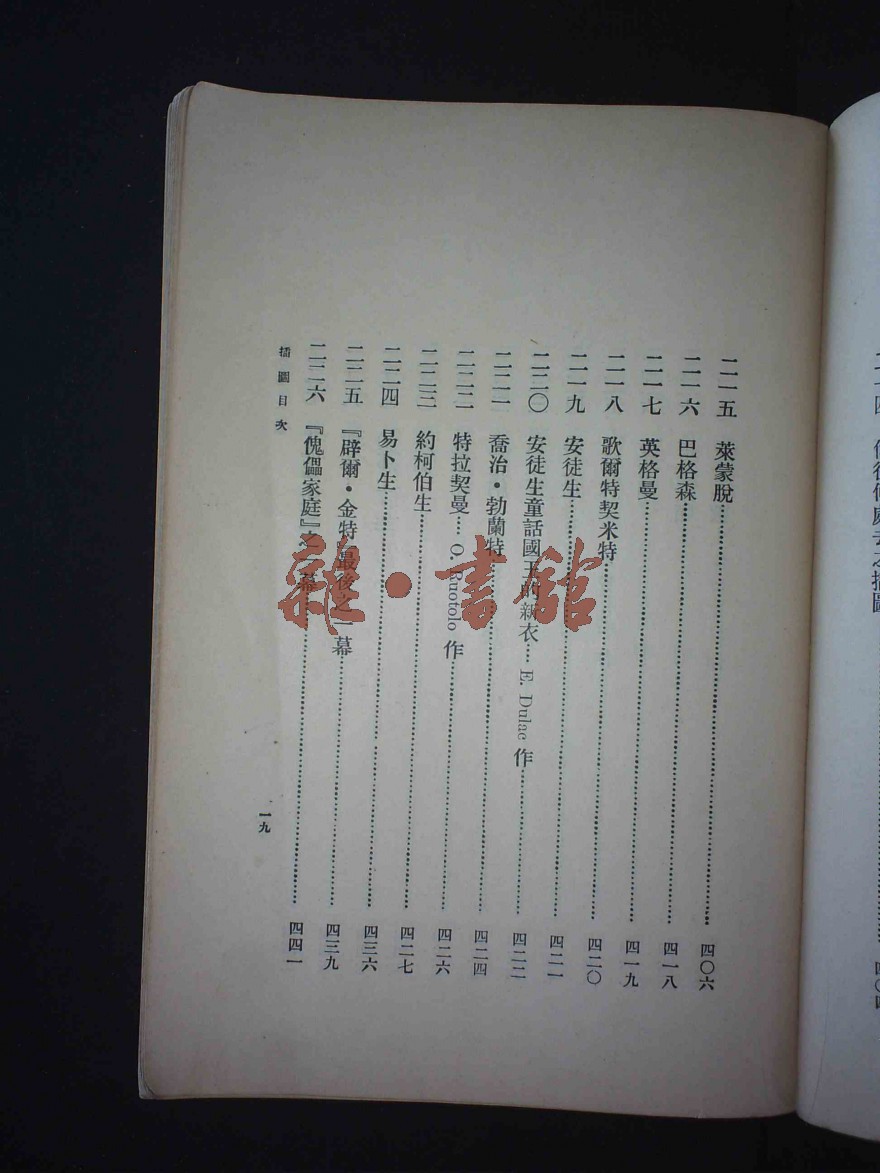 二一五　萊蒙脫……四〇六
二一六　巴格森……四一八
二一七　英格曼……四一九
二一八　歌爾特契米特……四二〇
二一九　安徒生……四二一
二二〇　安徒生童話國王的新衣… E. Dulac 作……四二二
二二一　喬治·勃蘭特……四二四
二二二　特拉契曼… O. Ruotolo 作……四二六
二二三　約柯伯生……四二七
二二四　易卜生……四三六
二二五　『辟爾·金特』最後之一幕……四三九
二二六　『傀儡家庭』之一幕……四四一
插圖目次
一九
雜·書館